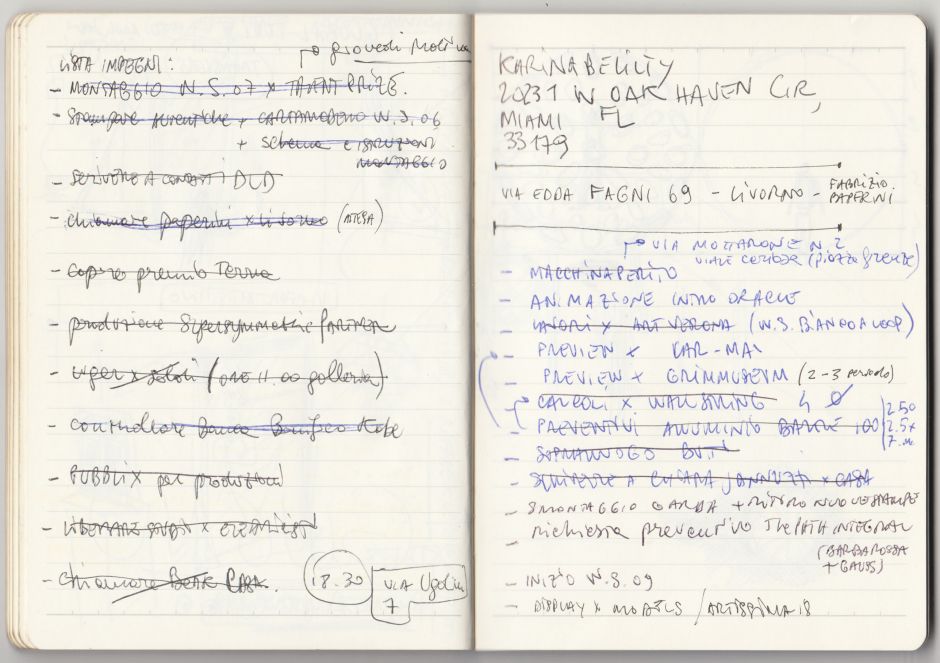 giovedì Mollica
LISTA IMPEGNI:
- MONTAGGIO W.S. 07 x TALENT PRIZE.
- Stampare autentiche + CARTAMODELLO W.S. 06
+ schema e ISTRUZIONI
MONTAGGIO
- SCRIVERE A CONTATTI DLD
- chiamare paperini x livorno (ATTESA)
- copre premio Terna
- produzione Supersymmetric PARTNER
- (ORE 11.00 galleria)
- controllare Banca Bonifico Kobe
- PUBBLIX per produzioni
- LIBERARE x
- chiamare CASA.
18.30
VIA Ugolini
7
KARINA BELILTY
20231 W OAK HAVEN CIR,
MIAMI FL
33179
VIA EDDA FAGNI 69 - LIVORNO - FABRIZIO
PAPERINI
VIA MOTTARONE N. 2
VIALE CERTOSA (piazza firenze)
- MACCHINA PERITO
- ANIMAZIONE INTRO ORACLE
- LAVORI x ART VERONA (W.S. BIANCO A LOOP)
- PREVIEW x KAR-MA
- PREVIEW x GRIMMUSEUM (2-3 periodo)
- CALCOLI x WALL STRING 4 Ø
- PREVENTIVI ALLUMINIO BARRE 100
2.50
2.5x
7.
- SOPRALLUOGO BUT
- SCRIVERE A CHIARA JANNUZZI x CASA
- SMONTAGGIO GARDA + RITIRO NUOVE STAMPE
- Richiesta preventivo The PATH INTEGRAL
(BARBAROSSA
+ GAUSS)
- INIZIO W.S. 09
- DISPLAY x MODELS / ARTISSIMA 18